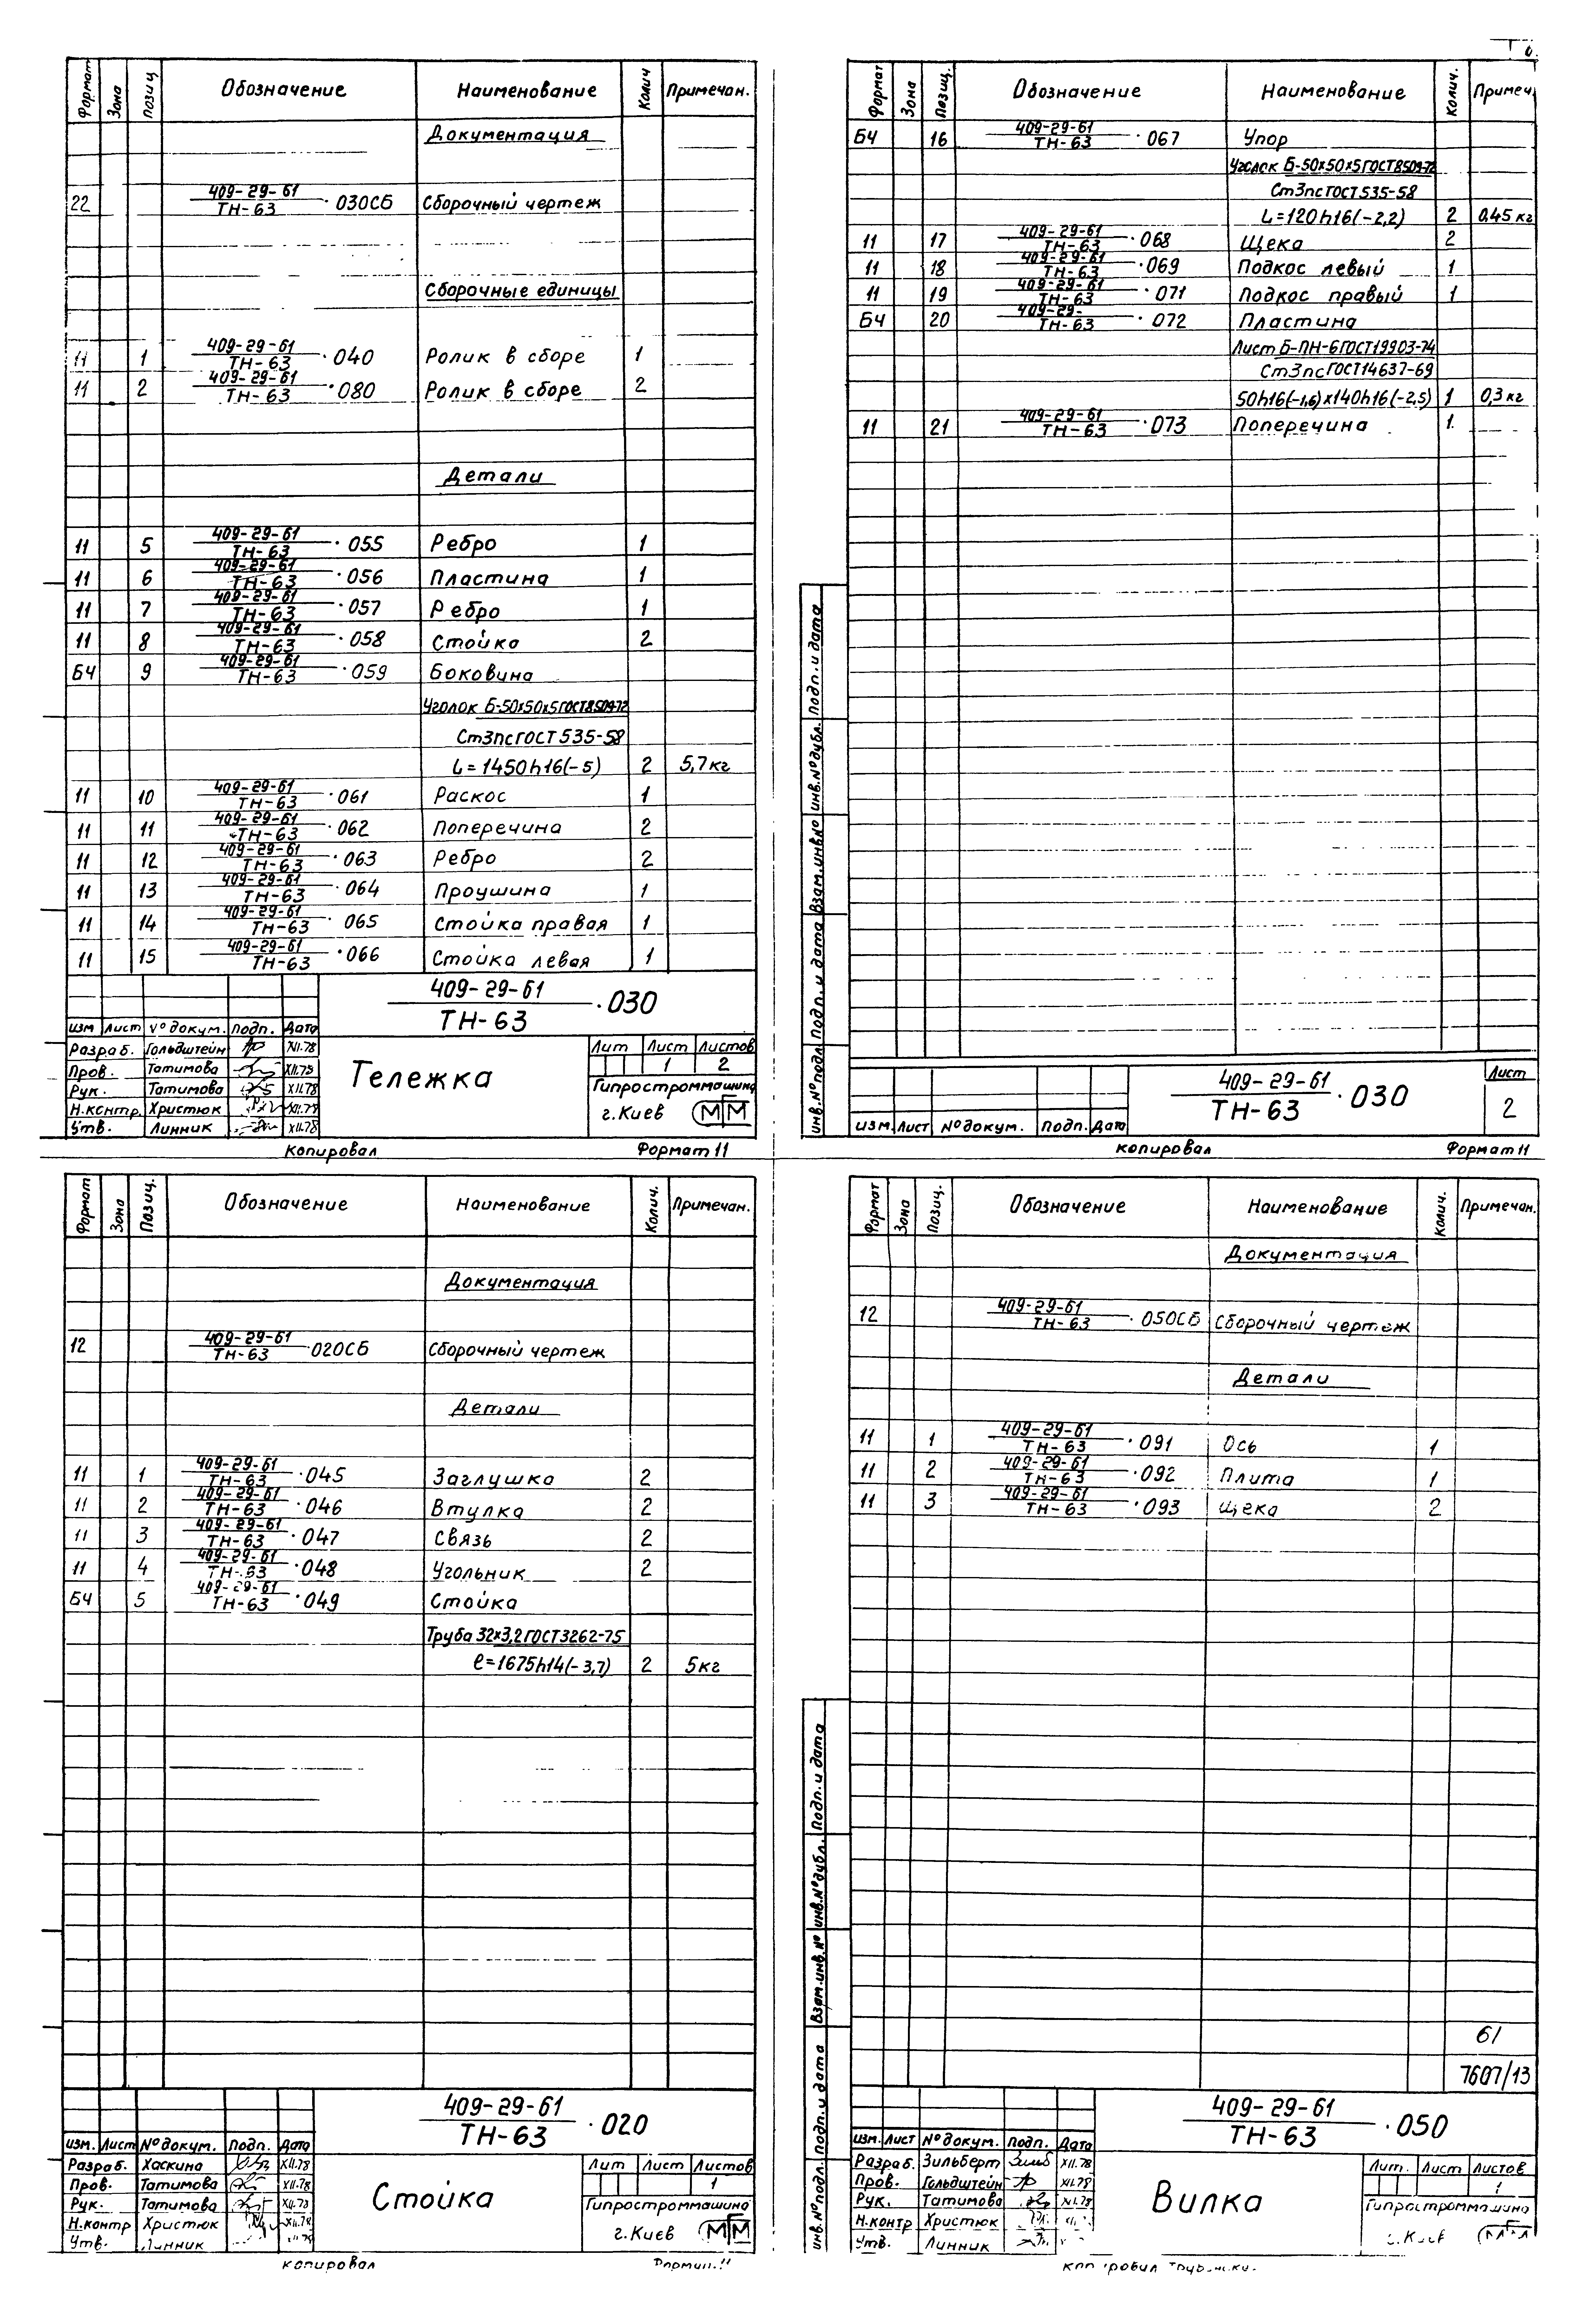 Формат Зона Позиц Обозначение Наименование Колич Примечан.
Документация
22 409-29-61/ТН-63 ·030СБ Сборочный чертеж
Сборочные единицы
11 1 409-29-61/ТН-63 ·040 Ролик в сборе 1
11 2 409-29-61/ТН-63 ·080 Ролик в сборе 2
Детали
11 5 409-29-61/ТН-63 ·055 Ребро 1
11 6 409-29-61/ТН-63 ·056 Пластина 1
11 7 409-29-61/ТН-63 ·057 Ребро 1
11 8 409-29-61/ТН-63 ·058 Стойка 2
БЧ 9 409-29-61/ТН-63 ·059 Боковина
Уголок Б-50х50х5 ГОСТ 8509-72
Ст3пс ГОСТ 535-58
L=1450h16(-5) 2 5,7кг
11 10 409-29-61/ТН-63 ·061 Раскос 1
11 11 409-29-61/ТН-63 ·062 Поперечина 2
11 12 409-29-61/ТН-63 ·063 Ребро 2
11 13 409-29-61/ТН-63 ·064 Проушина 1
11 14 409-29-61/ТН-63 065 Стойка правая 1
11 15 409-29-61/ТН-63 ·066 Стойка левая 1
409-29-61/ТН-63 ·030
Изм Лист № докум. Подп. Дата
Разраб. Гольдштейн XII.78
Пров. Татимова XII.78
Рук. Татимова XII.78
Н.контр. Христюк XII.78
Утв. Линник XII.78
Тележка
Лит Лист Листов
1 2
Гипростроммашина
г.Киев МГМ
Копировал Формат 11
Формат Зона Позиц. Обозначение Наименование Колич. Примеч
БЧ 16 409-29-61/ТН-63 ·067 Упор
Уголок Б-50х50х5 ГОСТ 8509-72
Ст3пс ГОСТ 535-58
L=120h16(-2,2) 2 0,45 кг
11 17 409-29-61/ТН-63 ·068 Щека 2
11 18 409-29-61/ТН-63 ·069 Подкос левый 1
11 19 409-29-61/ТН-63 ·071 Подкос правый 1
БЧ 20 409-29-/ТН-63 ·072 Пластина
Лист Б-ПН-6 ГОСТ 19903-74
Ст3пс ГОСТ 14637-69
50h16(-1,6)х140h16(-2,5) 1 0,3 кг
11 21 409-29-61/ТН-63 ·073 Поперечина 1.
Инв.№ подл Подп. и дата Взам.инв.№ Инв.№ дубл. Подп. и дата
409-29-61/ТН-63 ·030
Лист
2
Изм. Лист № докум. Подп. Дата
Копировал Формат 11
Формат Зона Позиц. Обозначение Наименование Колич. Примечан.
Документация
12 409-29-61/ТН-63 ·020СБ Сборочный чертеж
Детали
11 1 409-29-61/ТН-63 ·045 Заглушка 2
11 2 409-29-61/ТН-63 ·046 Втулка 2
11 3 409-29-61/ТН-63 ·047 Связь 2
11 4 409-29-61/ТН-63 ·048 Угольник 2
БЧ 5 409-29-61/ТН-63 ·049 Стойка
Труба 32х3,2 ГОСТ 3262-75
ℓ=1675h14(-3,7) 2 5кг
409-29-61/ТН-63 ·020
Изм. Лист № докум. Подп. Дата
Разраб. Хаскина XII.78
Пров. Татимова XII.78
Рук. Татимова XII.78
Н.контр Христюк XII.78
Утв. Линник
Стойка
Лит Лист Листов
1
Гипростроммашина
г.Киев МГМ
Копировал Формат 11
Формат Зона Позиц. Обозначение Наименование Колич. Примечан.
Документация
12 409-29-61/ТН-63 ·050СБ Сборочный чертеж
Детали
11 1 409-29-61/ТН-63 ·091 Ось 1
11 2 409-29-61/ТН-63 ·092 Плита 1
11 3 409-29-61/ТН-63 ·093 Щека 2
61
7607/13
Инв.№ подл. Подп. и дата Взам.инв.№ Инв.№ дубл. Подп. и дата
409-29-61/ТН-63 ·050
Изм. Лист № докум. Подп. Дата
Разраб. Зильберт XII.78
Пров. Гольдштейн XII.78
Рук. Татимова XII.78
Н.контр Христюк
Утв. Линник
Вилка
Лит. Лист Листов
1
Гипростроммашина
г.Киев МГМ